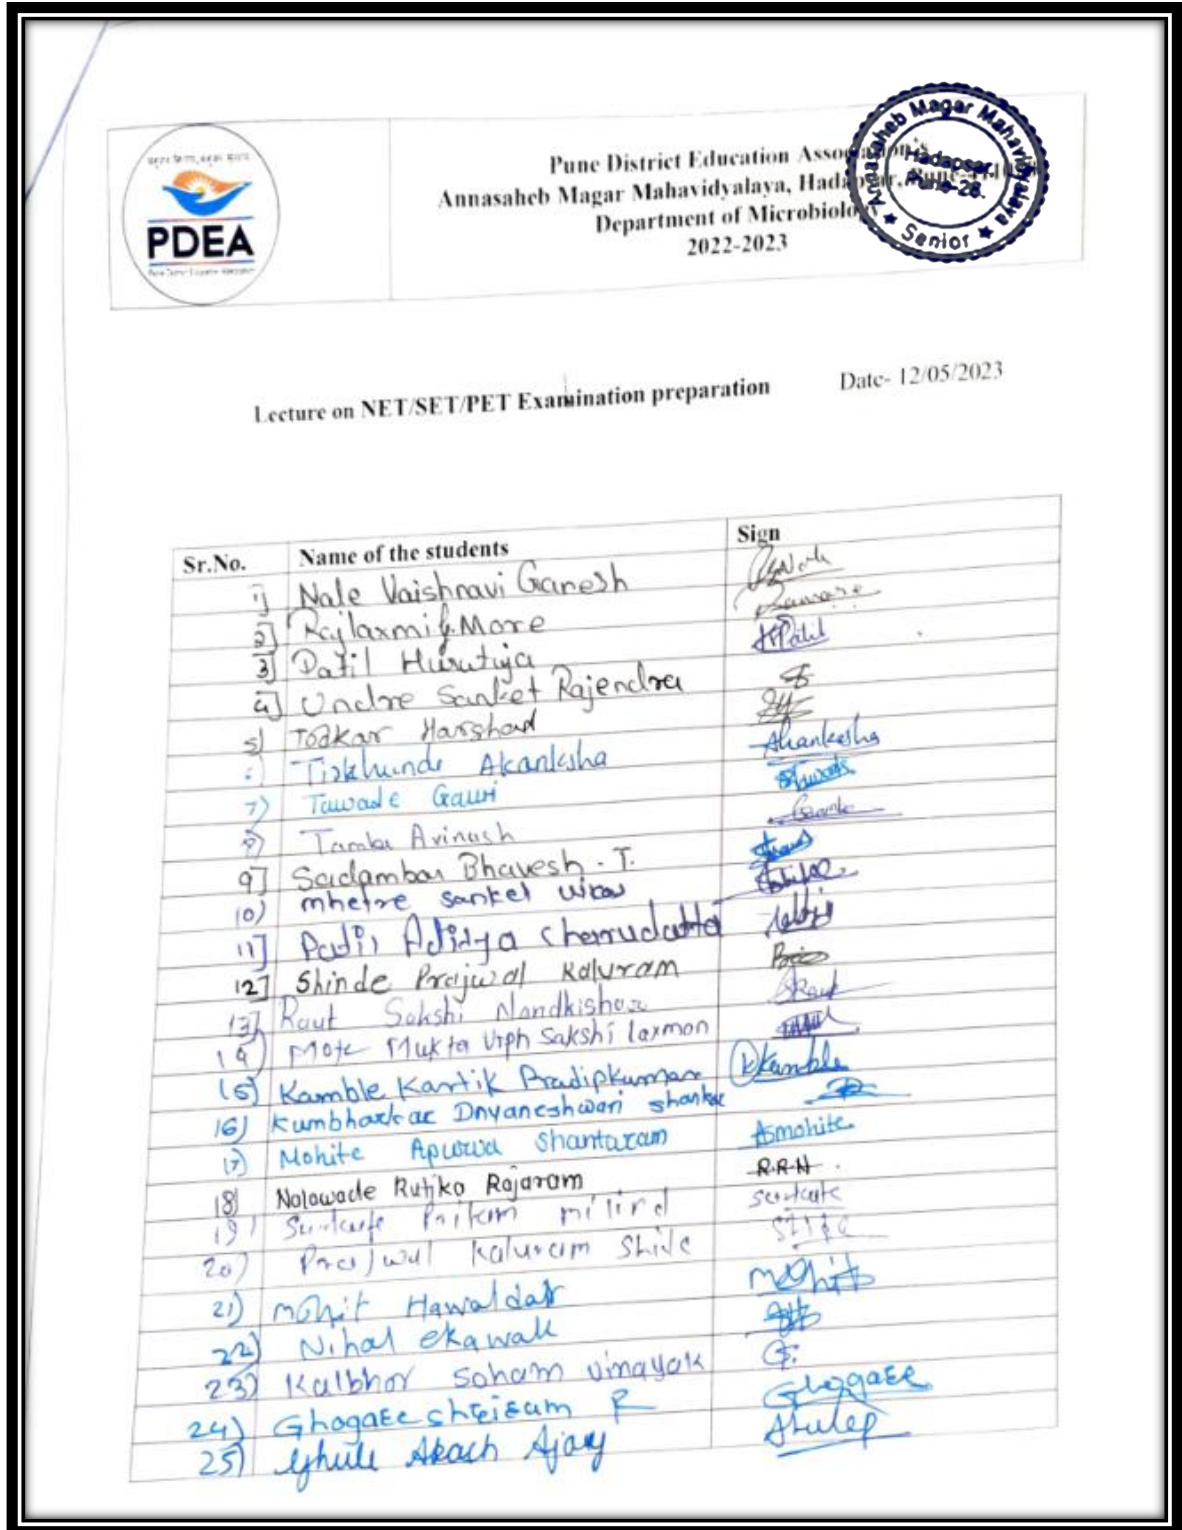 PDEA
Pune District Education Association's
Annasaheb Magar Mahavidyalaya, Hadapsar, Pune-
Department of Microbiology
2022-2023
Annasaheb Magar Mahavidyalaya
Hadapsar,
Pune-28.
★ Senior ★
Lecture on NET/SET/PET Examination preparation
Date- 12/05/2023
Sr.No. Name of the students Sign
1] Nale Vaishnavi Ganesh
2] Rajlaxmi G. More
3] Patil Hurutuja HPatil
4] Undre Sanket Rajendra
5) Todkar Harshad
Tirkhunde Akanksha Akanksha
7) Tawade Gauri
8) Tambe Avinash
9] Sadambar Bhavesh . T.
10) mhetre sanket vikas
11] Patil Aditya Charudatta
12] Shinde Prajwal Kaluram
13] Raut Sakshi Nandkishor SRaut
14) Mote Mukta Urph Sakshi laxman
15) Kamble Kartik Pradipkumar kkamble
16) Kumbharkar Dnyaneshwari shankar
17) Mohite Apurva Shantaram Asmohite
18) Nalawade Rutika Rajaram R.R.N.
19) milind
20) Prajwal Kaluram Shide
21) mohit Hawaldar mohit
22) Nihal ekawak
23) Kalbhor Soham vinayak
24) Ghogare shriram R Ghogare
25) Ghule Akash Ajay